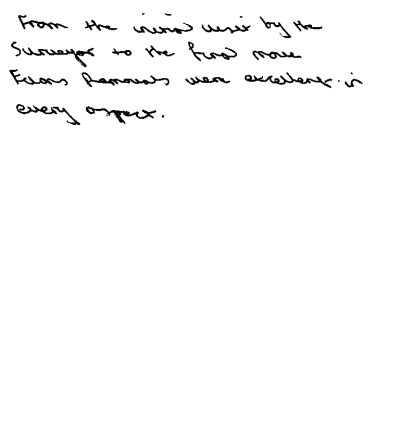 From the initial visit by the
Surveyor to the final move
Evans Removals were excellent in
every aspect.